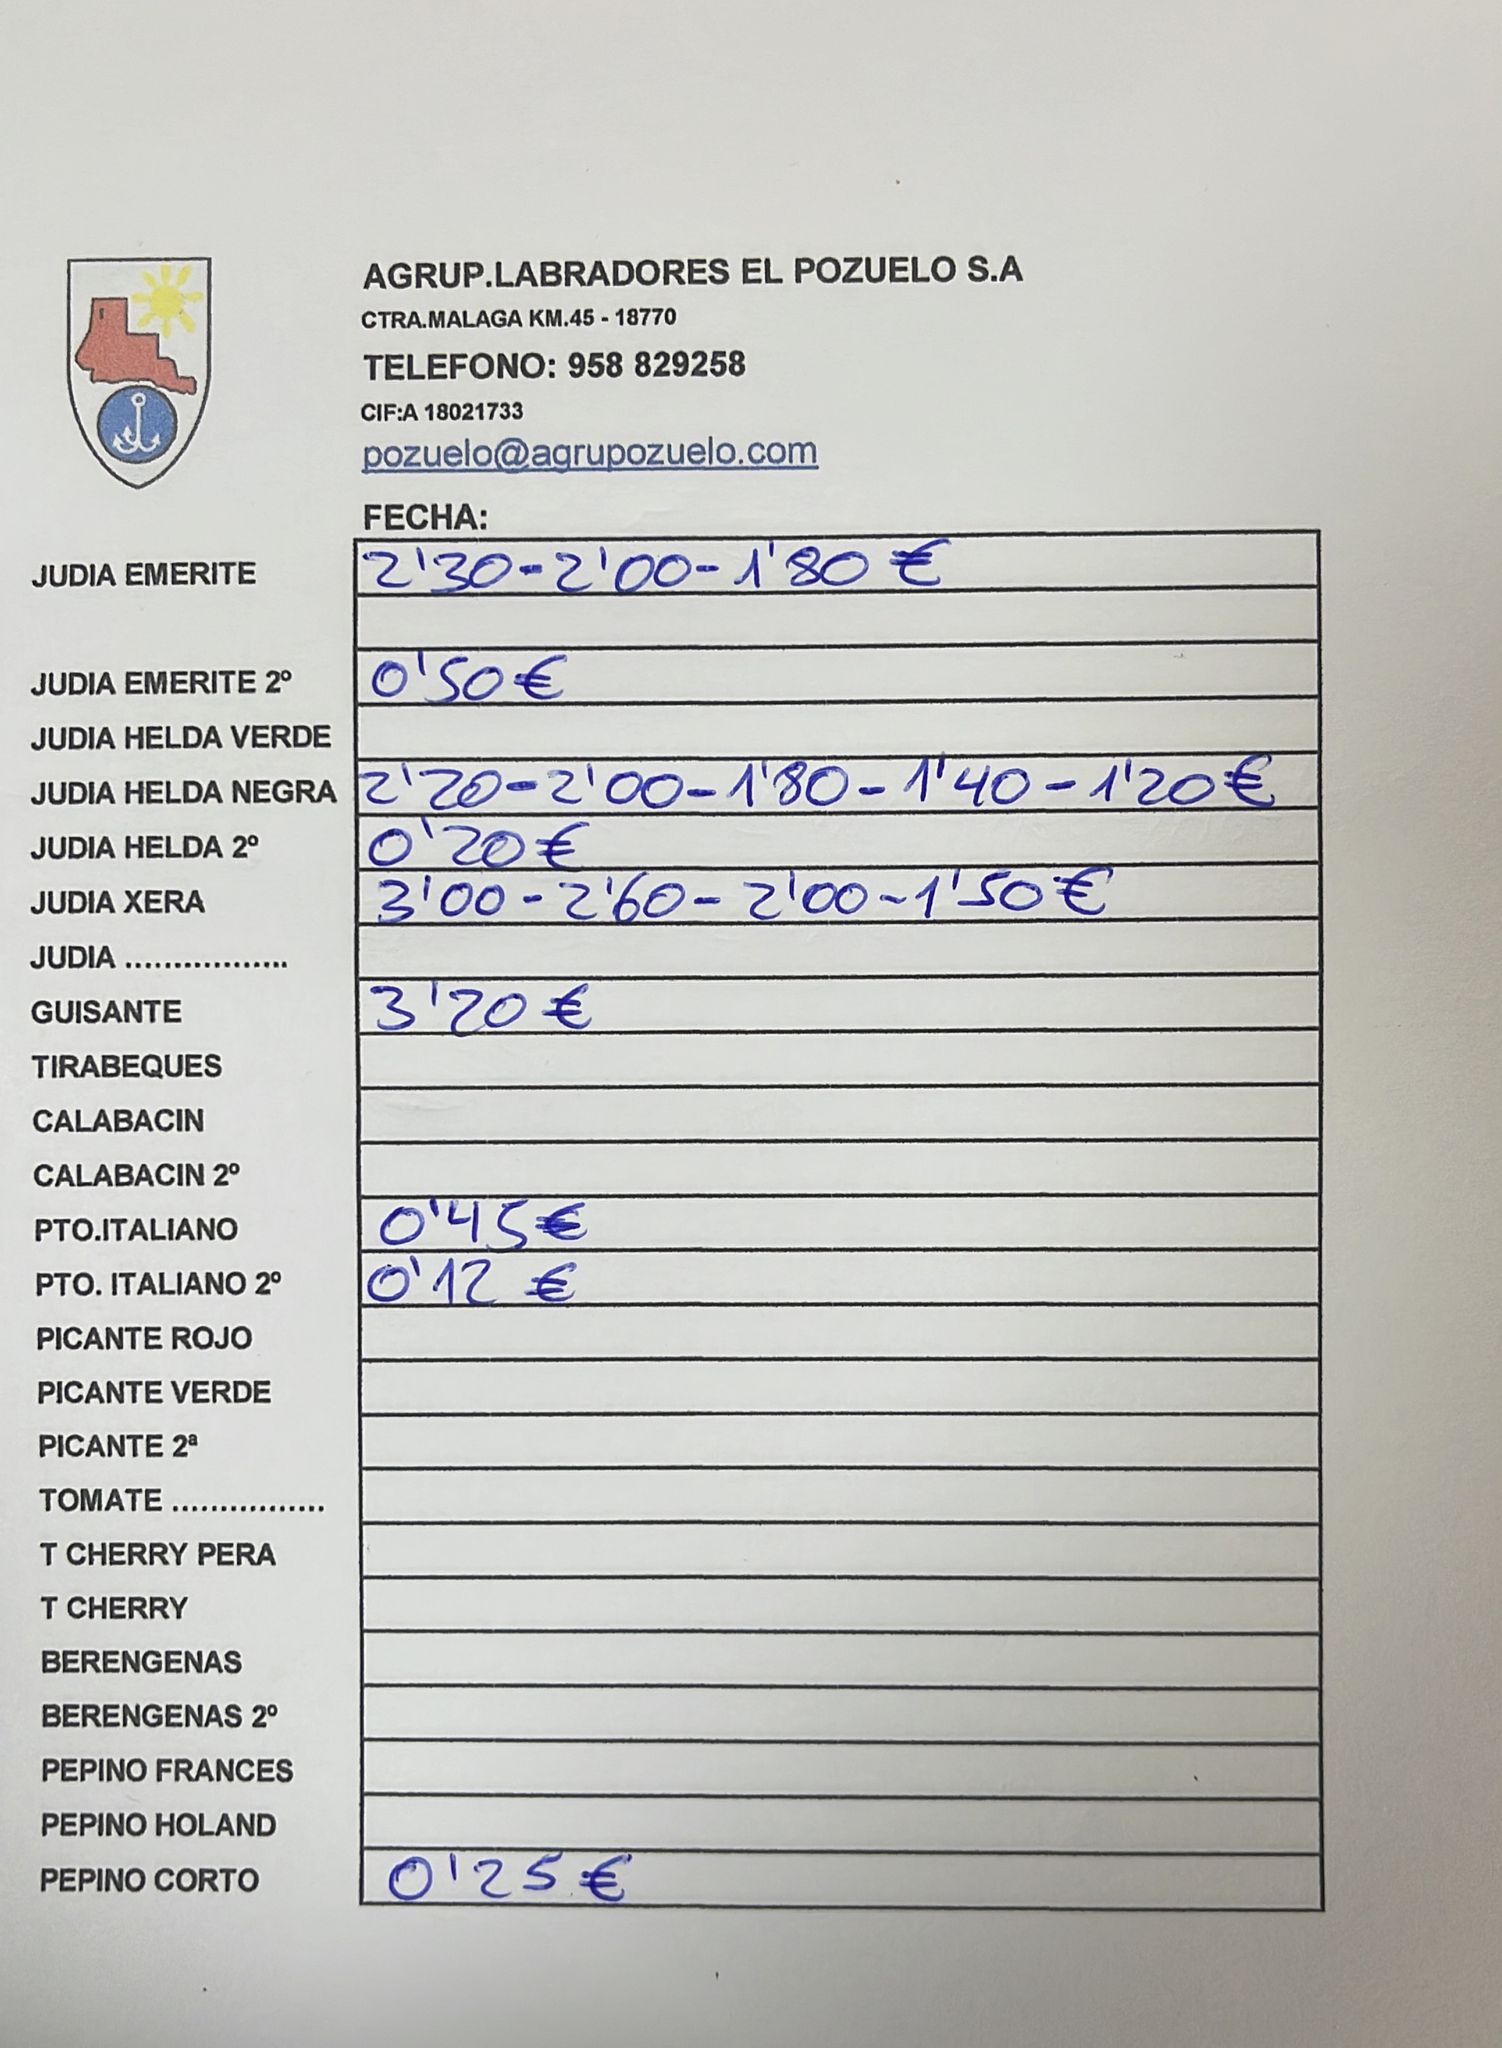 AGRUP.LABRADORES EL POZUELO S.A
CTRA.MALAGA KM.45 - 18770
TELEFONO: 958 829258
CIF:A 18021733
pozuelo@agrupozuelo.com
FECHA:
JUDIA EMERITE 2'30-2'00-1'80 €
JUDIA EMERITE 2º 0'50€
JUDIA HELDA VERDE
JUDIA HELDA NEGRA 2'20-2'00-1'80-1'40-1'20€
JUDIA HELDA 2º 0'20€
JUDIA XERA 3'00-2'60-2'00-1'50€
JUDIA .................
GUISANTE 3'20€
TIRABEQUES
CALABACIN
CALABACIN 2º
PTO.ITALIANO 0'45€
PTO. ITALIANO 2º 0'12 €
PICANTE ROJO
PICANTE VERDE
PICANTE 2ª
TOMATE ................
T CHERRY PERA
T CHERRY
BERENGENAS
BERENGENAS 2º
PEPINO FRANCES
PEPINO HOLAND
PEPINO CORTO 0'25€